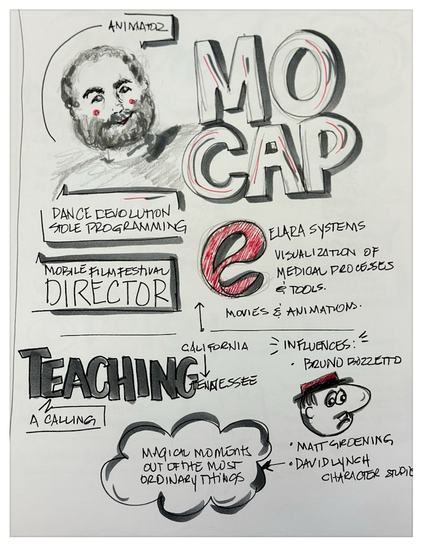 ANIMATOR
MO
CAP
DANCE DEVOLUTION
STOLE PROGRAMMING
MOBILE FILM FESTIVAL
DIRECTOR
e
ELARA SYSTEMS
VISUALIZATION OF
MEDICAL PROCESSES
& TOOLS.
MOVIES & ANIMATIONS.
TEACHING
A CALLING
CALIFORNIA
TENNESSEE
INFLUENCES:
• BRUNO BOZZETTO
• MATT GROENING
• DAVID LYNCH
CHARACTER STUDIE
MAGICAL MOMENTS
OUT OF THE MOST
ORDINARY THINGS